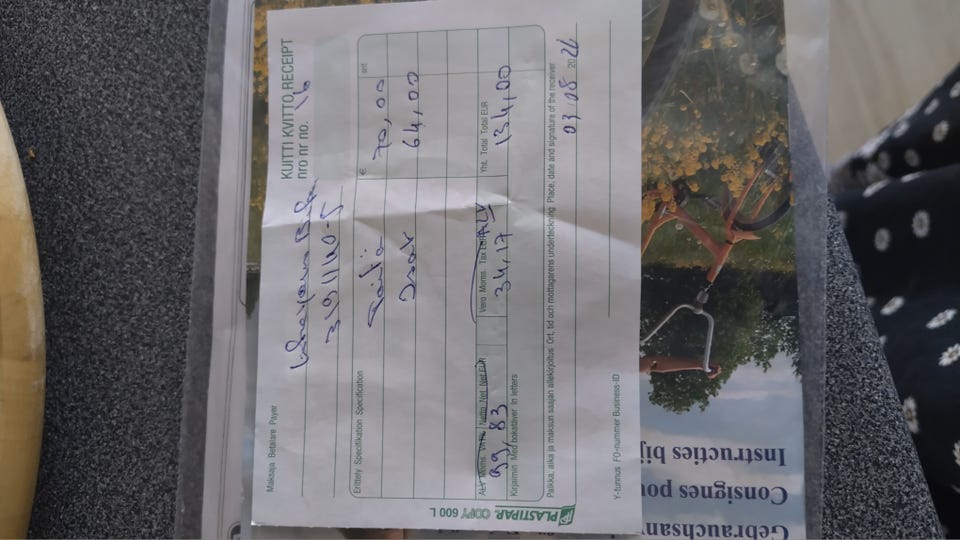 KUITTI KVITTO RECEIPT
nro nr no. 16
Maksaja Betalare Payer
3191140-5
Erittely Specifikation Specification
€ snt
70,00
64,00
ALV Moms VAT% Netto Net Net EUR Vero Moms Tax EUR ALV Yht. Total Total EUR
99,83 34,17 134,00
Kirjaimin Med bokstäver In letters
Paikka, aika ja maksun saajan allekirjoitus Ort, tid och mottagarens underteckning Place, date and signature of the receiver
03.05 2024
Y-tunnus FO-nummer Business-ID
PLASTIPAR COPY 600 L
Gebrauchsan
Consignes pou
Instructies bij